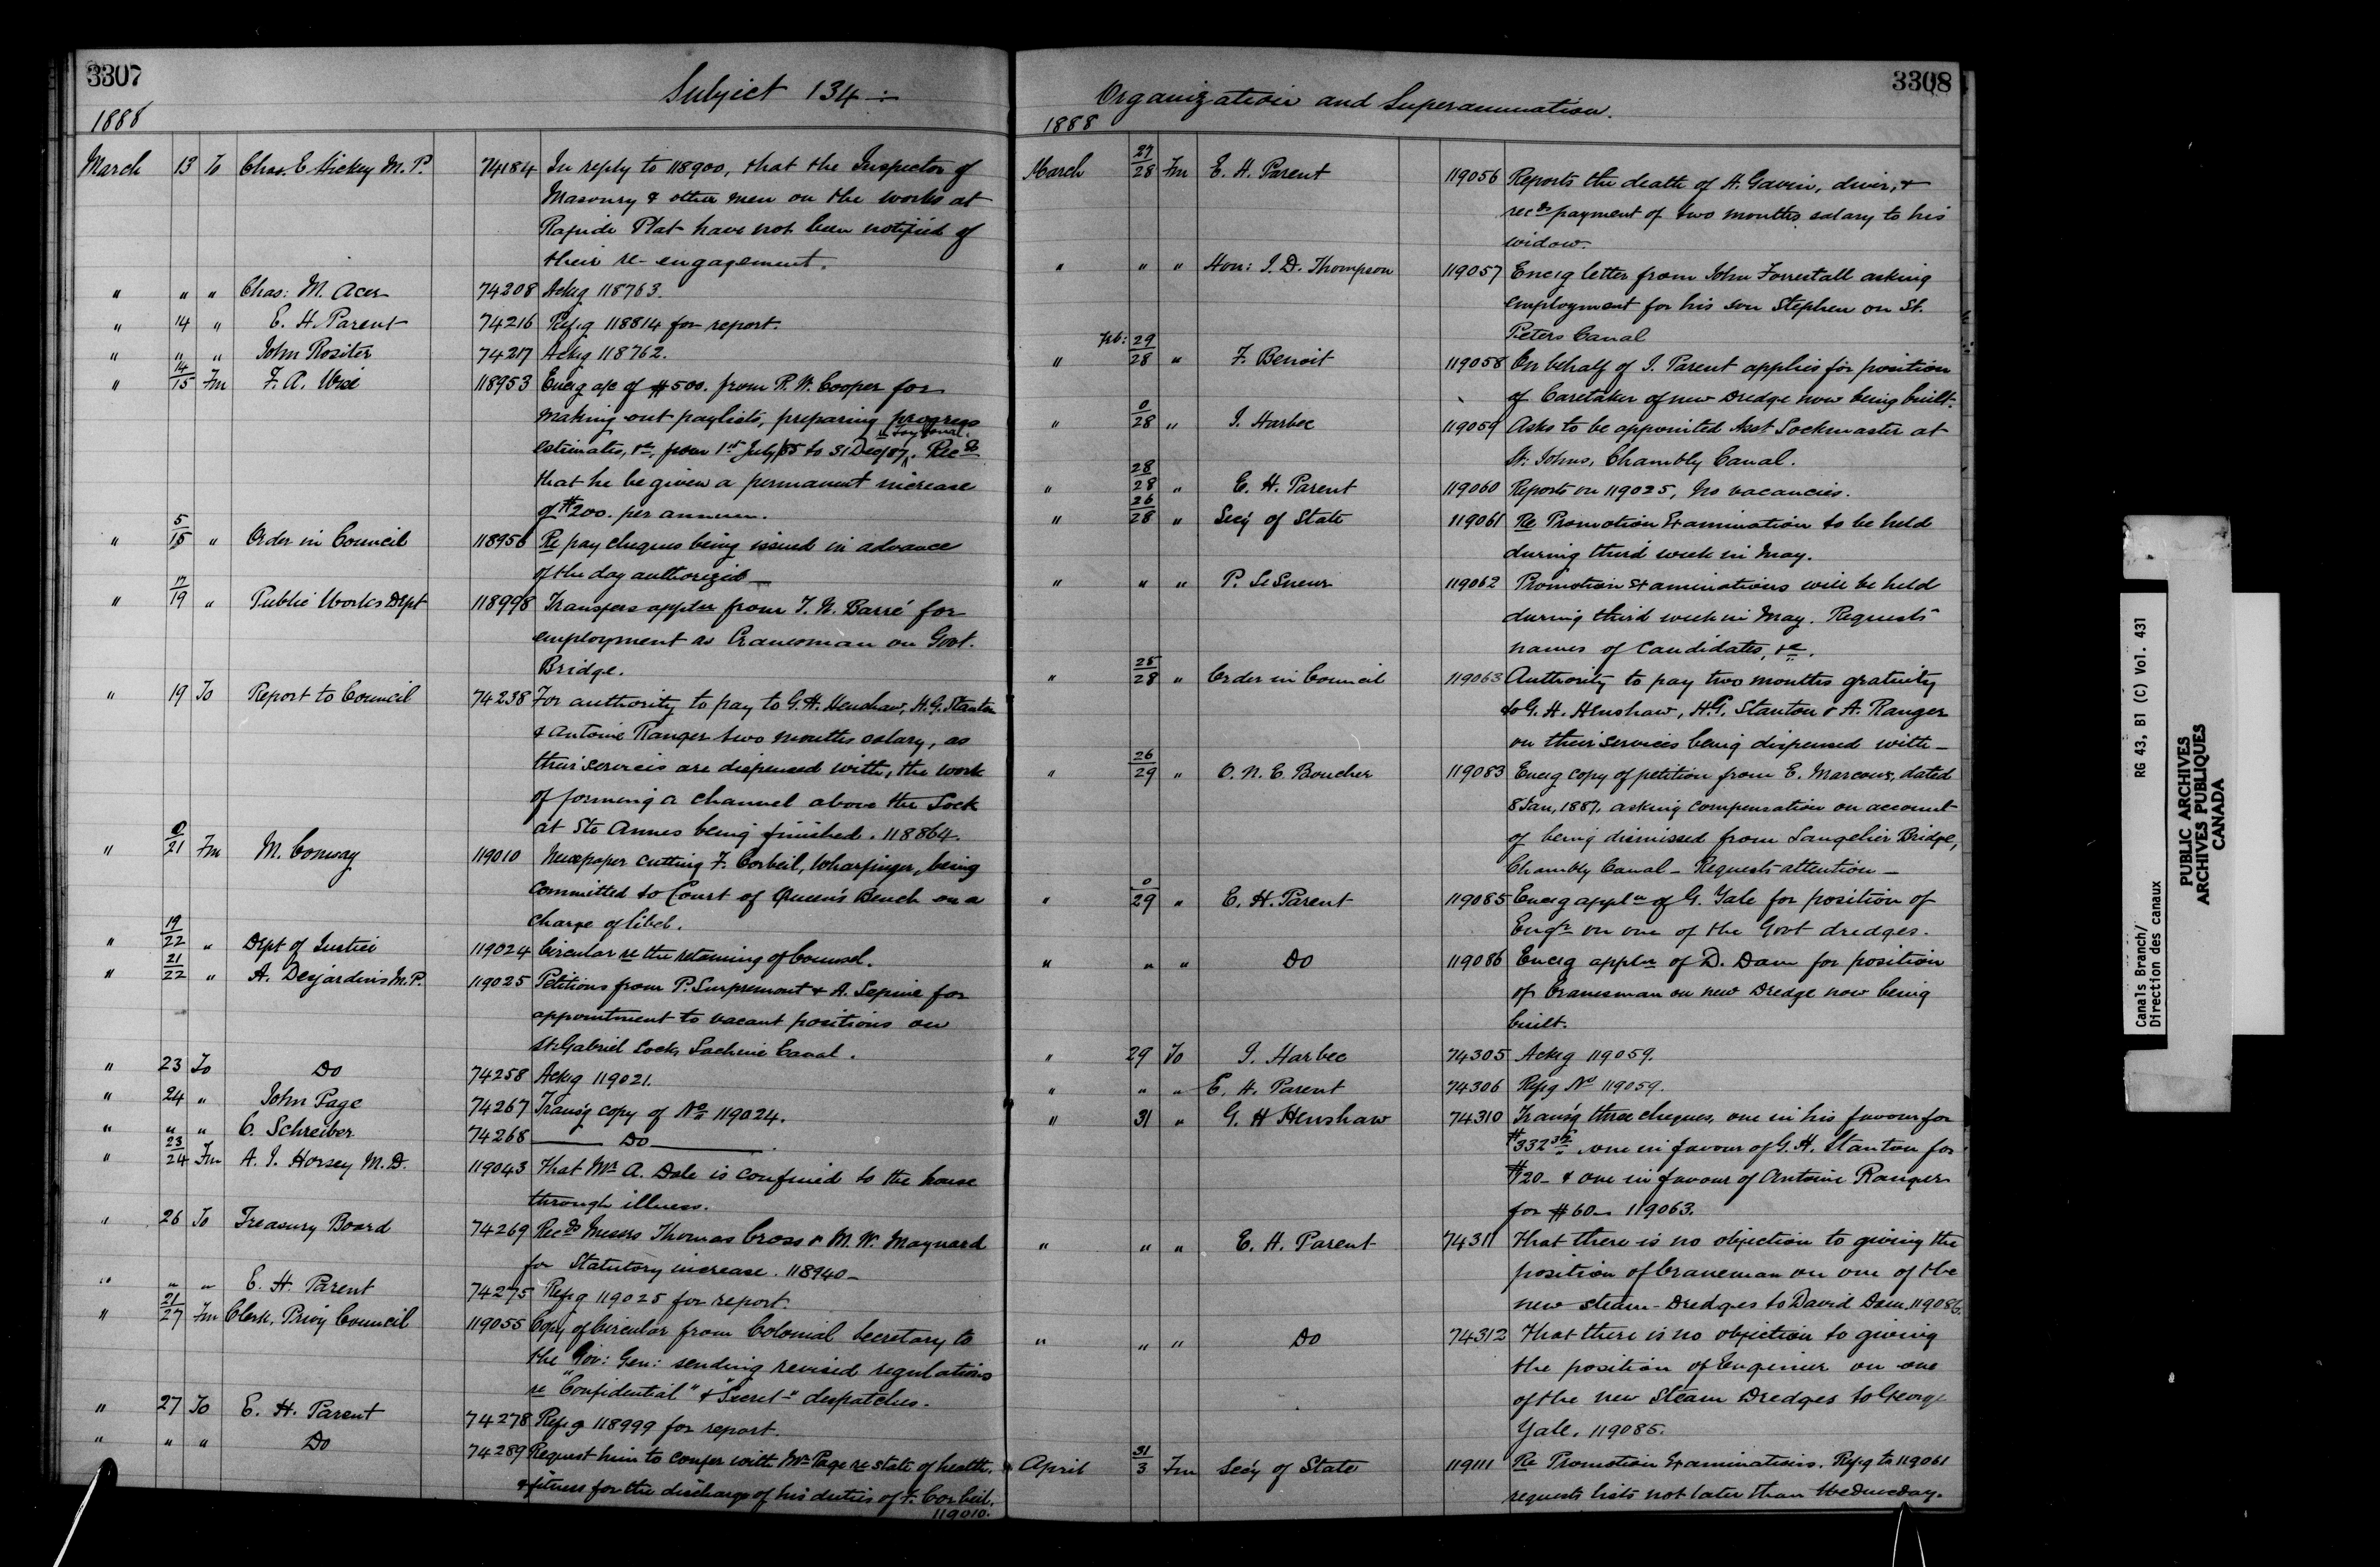 3307
Subject 134 :-
1888
March 13 To Chas. E Hickey M.P. 74184 In reply to 118900, that the Inspector of
Masonry & other men on the works at
Rapide Plat have not been notified of
their re-engagement.
" " " Chas: M. Acer 74208 Ackg 118763.
" 14 " E. H. Parent 74216 Refg 118814 for report.
" " " John Rositer 74217 Ackg 118762.
" 14/15 Fm F. A. Wise 118953 Encg a/c of $500. from R. W. Cooper for
making out paylists, preparing progress
estimates, &c, from 1st July/85 to 31 Dec/87, Recds
that he be given a permanent increase
of $200. per annum.
" 5/15 " Order in Council 118956 Re pay cheques being issued in advance
of the day authorized —
" 17/19 " Public Works Dept 118998 Transfers appln from T. N. Barré for
employment as Cranesman on Govt.
Bridge.
" 19 To Report to Council 74238 For authority to pay to G. H. Henshaw, H. G. Stanton
& Antoine Ranger two months salary, as
their services are dispensed with, the work
of forming a channel above the Lock
at Ste Annes being finished. 118864.
" 0/21 Fm M. Conway 119010 Newspaper cutting F. Corbeil, Wharfinger, being
committed to Court of Queen's Bench on a
charge of libel.
" 19/22 " Dept of Justice 119024 Circular re the retaining of Counsel.
" 21/22 " A. Desjardins M.P. 119025 Petitions from P. Surpremont & A. Lepine for
appointment to vacant positions on
St. Gabriel Lock, Lachine Canal.
" 23 To Do 74258 Ackg 119021.
" 24 " John Page 74267 Trans'g copy of No 119024.
" " " C. Schreiber 74268 —— Do ——
" 23/24 Fm A. J. Horsey M.D. 119043 That Mr A. Dale is confined to the house
through illness.
" 26 To Treasury Board 74269 Recds Messrs Thomas Cross & M. W. Maynard
for Statutory increase. 118940 —
" " " E. H. Parent 74275 Refg 119025 for report.
" 21/27 Fm Clerk, Privy Council 119055 Copy of Circular from Colonial Secretary to
the Gov: Gen: sending revised regulations
re "Confidential" & "Secret" despatches.
" 27 To E. H. Parent 74278 Refg 118999 for report.
" " " Do 74289 Request him to confer with Mr Page re state of health,
& fitness for the discharge of his duties of F. Corbeil.
119010.
3308
Organization and Superannuation.
1888
March 27/28 Fm E. H. Parent 119056 Reports the death of H. Gavin, diver, &
recds payment of two months salary to his
widow.
" " " Hon: J. D. Thompson 119057 Encg letter from John Forrestall asking
employment for his son Stephen on St.
Peters Canal
" Feb: 29/28 " F. Benoit 119058 On behalf of J. Parent applies for position
of Caretaker of new Dredge now being built.
" 0/28 " J. Harbec 119059 Asks to be appointed Asst Lockmaster at
St. Johns, Chambly Canal.
" 28/28 " E. H. Parent 119060 Reports on 119025, No vacancies.
" 26/28 " Secy of State 119061 Re Promotion Examination to be held
during third week in May.
" " " P. LeSueur 119062 Promotion Examinations will be held
during third week in May. Requests
names of Candidates, &c.
" 25/28 " Order in Council 119063 Authority to pay two months gratuity
to G. H. Henshaw, H. G. Stanton & A. Ranger
on their services being dispensed with —
" 26/29 " O. N. E. Boucher 119083 Encg copy of petition from E. Marcoux, dated
8 Jan, 1887, asking compensation on account
of being dismissed from Langelier Bridge,
Chambly Canal — Requests attention —
" 0/29 " E. H. Parent 119085 Encg appln of G. Yale for position of
Engr on one of the Govt dredges.
" " " Do 119086 Encg appln of D. Dam for position
of Cranesman on new Dredge now being
built.
" 29 To J. Harbec 74305 Ackg 119059.
" " " E. H. Parent 74306 Refg No 119059.
" 31 " G. H Henshaw 74310 Trans'g three cheques, one in his favour for
$332 , one in favour of G. H. Stanton for
$120 — & one in favour of Antoine Ranger
for $60 — 119063.
" " " E. H. Parent 74311 That there is no objection to giving the
position of Craneman on one of the
new steam-Dredges to David Dam. 119086.
" " " Do 74312 That there is no objection to giving
the position of Engineer on one
of the new Steam Dredges to George
Yale. 119085.
April 31/3 Fm Secy of State 119111 Re Promotion Examinations. Refg to 119061
requests lists not later than Wednesday.
Canals Branch/
Direction des canaux
RG 43, B1 (C) Vol. 431
PUBLIC ARCHIVES
ARCHIVES PUBLIQUES
CANADA